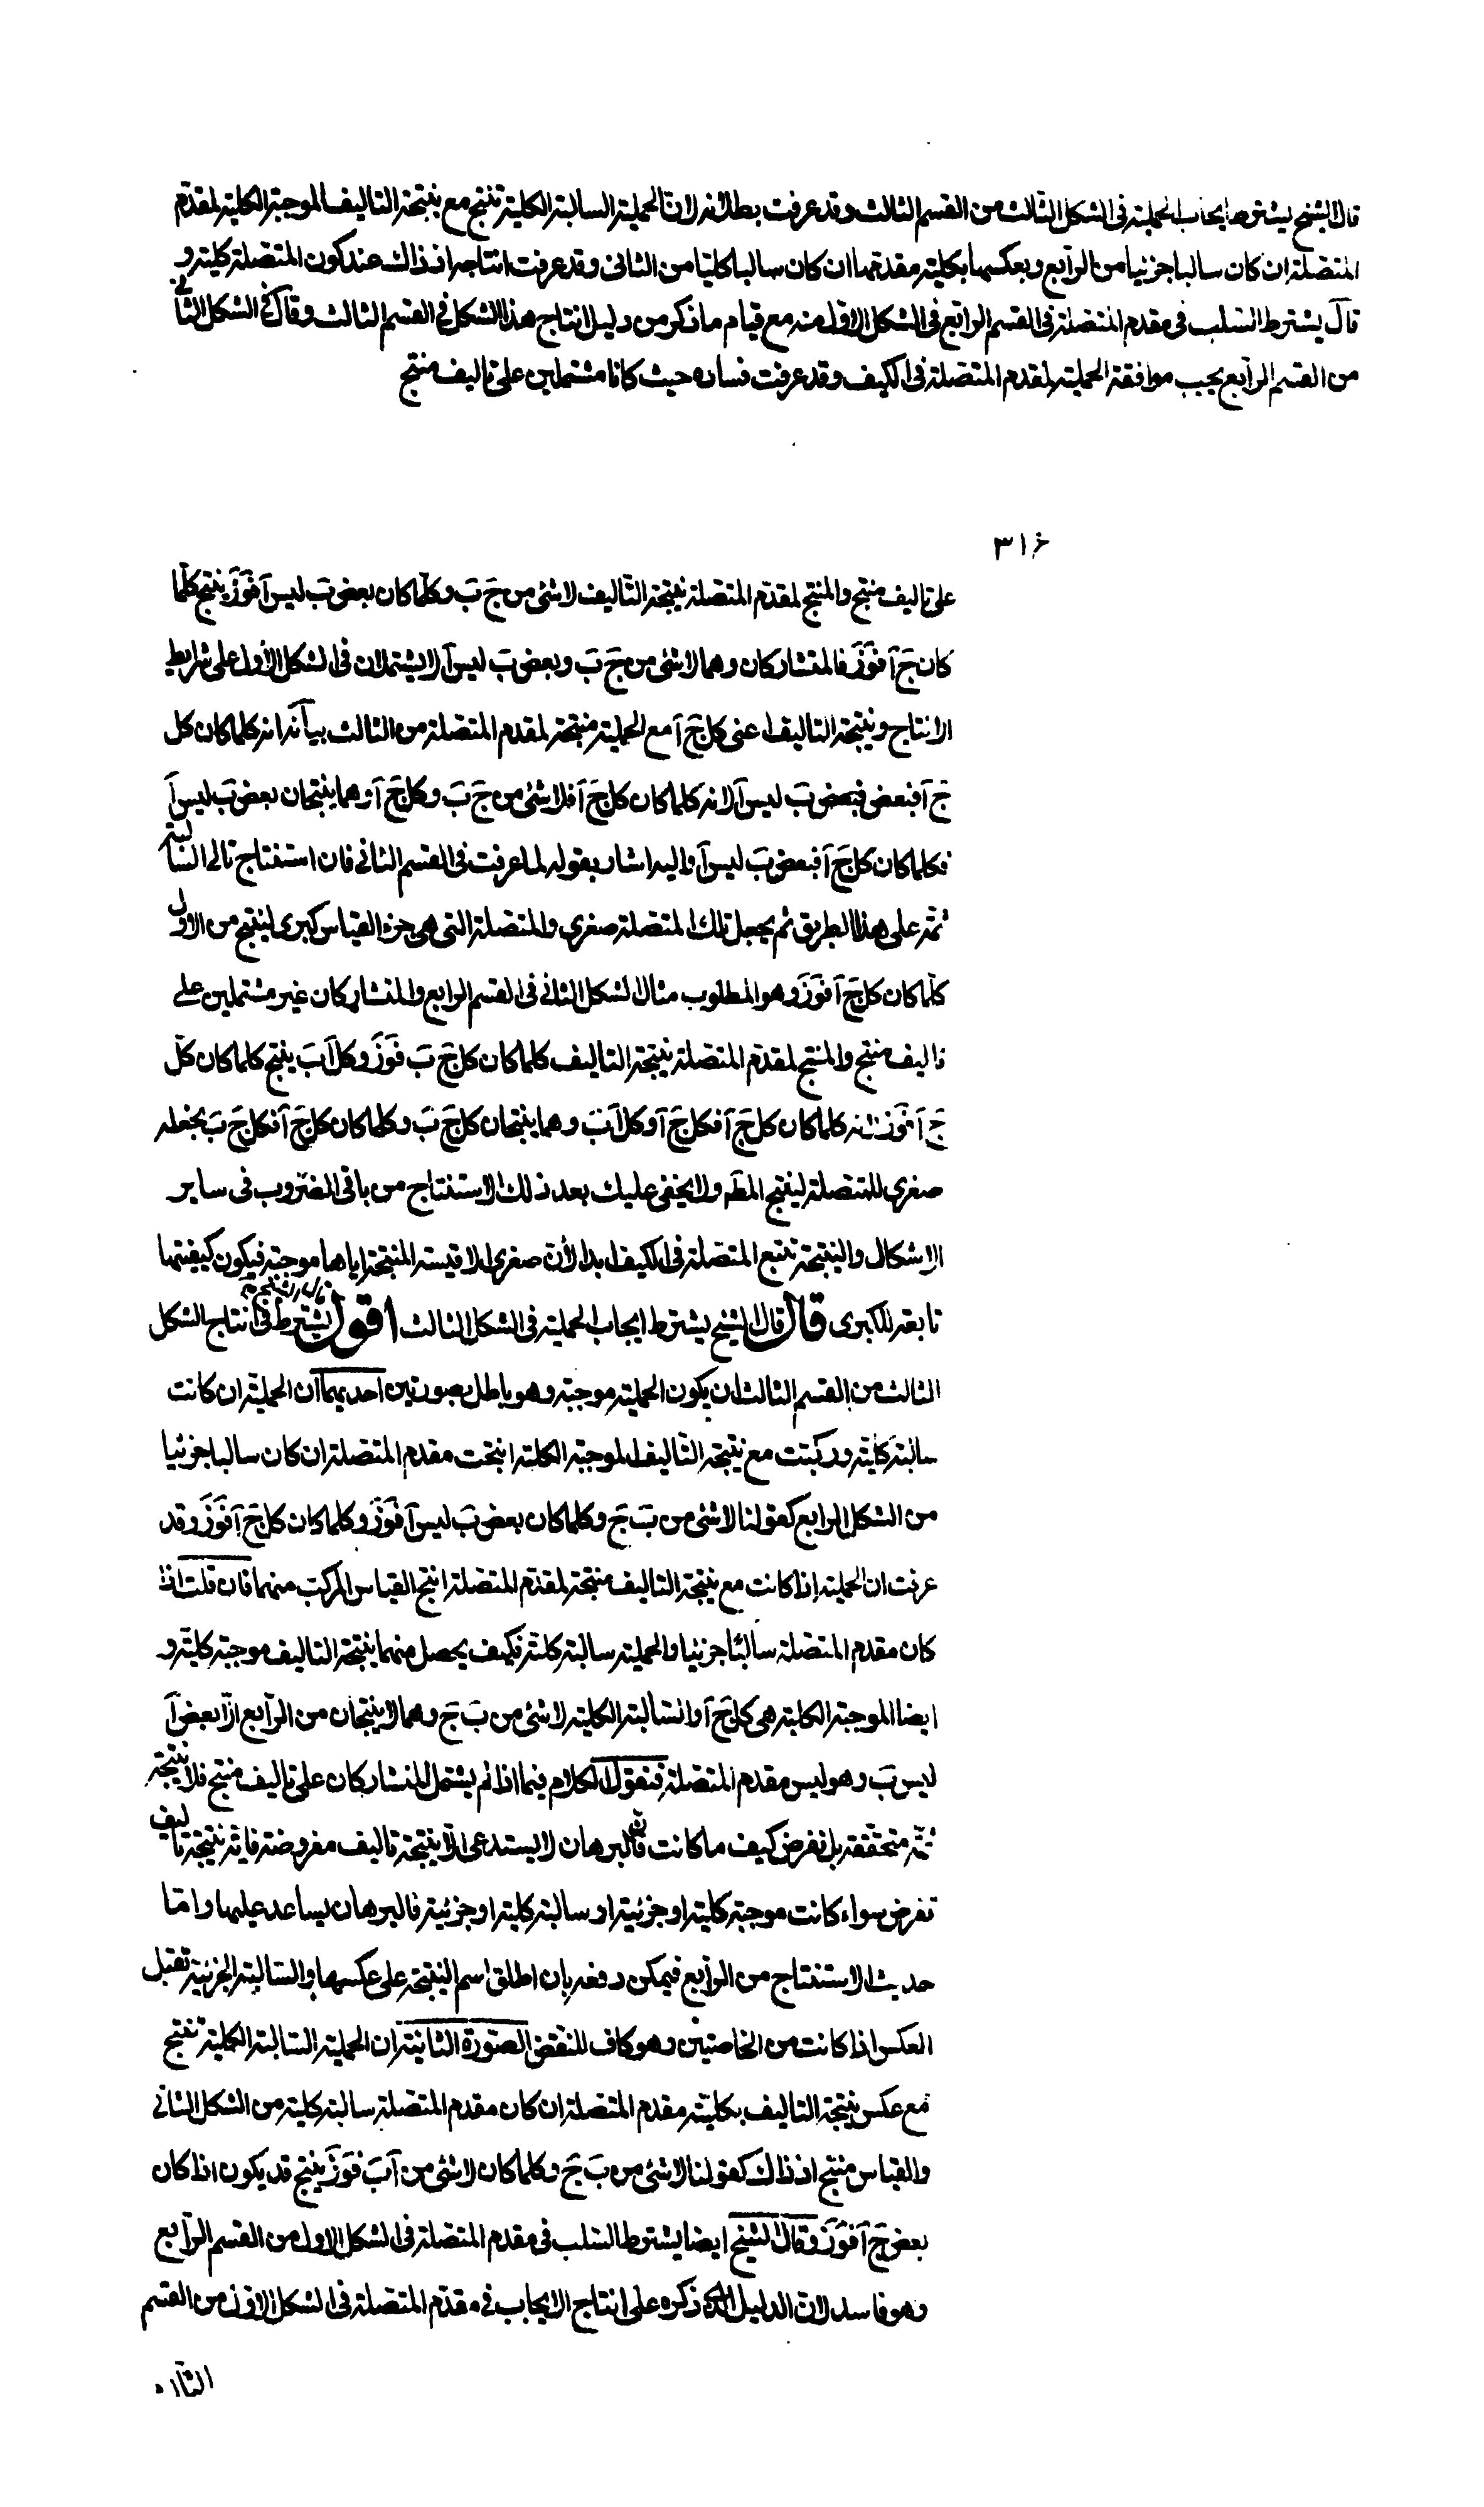 قال الشيخ يشترط ايجاب الحملية فى الشكل الثالث من القسم الثالث وقد عرفت بطلانه لان الحملية السالبة الكلية تنتج مع نتيجة التاليف الموجبة الكلية لمقدم
المتصلة ان كان سالبا جزئيا من الرابع وبعكسها بكلية مقدمها ان كان سالبا كليا من الثانى وقد عرفت انتاجه اذ ذاك عند كون المتصلة كلية و
قال يشترط السلب فى مقدم المتصلة فى القسم الرابع فى الشكل الاول منه مع قيام ما ذكر من دليل انتاج هذا الشكل فى القسم الثالث وقال فى الشكل الثانى
من القسم الرابع يجب موافقة الحملية لمقدم المتصلة فى الكيف وقد عرفت فساده حيث كانا مشتملين على تاليف منتج
٣١٤
على تاليف منتج والمنتج لمقدم المتصلة نتيجة التاليف لا شئ من جَ بَ وكلما كان بعض بَ ليس اَ فوَزَ ينتج كلما
كان جَ اَ فوَزَ فالمتشاركان وهما لا شئ من جَ بَ وبعض بَ ليس اَ لا يشتملان فى الشكل الاول على شرايط
الانتاج ونتيجة التاليف اعنى كل جَ اَ مع الحملية منتجة لمقدم المتصلة من الثالث بيانه انه كلما كان كل
جَ اَ فبعض فبعض بَ ليس اَ لانه كلما كان كل جَ اَ فلا شئ من جَ بَ وكل جَ اَ وهما ينتجان بعض بَ ليس اَ
فكلما كان كل جَ اَ فبعض بَ ليس اَ واليه اشار بقوله لما عرفت فى القسم الثانى فان استنتاج تالى السالبة
ثمة على هذا الطريق ثم يجعل تلك المتصلة صغرى والمتصلة التى هى جزء القياس كبرى لينتج من الاول
كلما كان كل جَ اَ فوَزَ وهو المطلوب مثال الشكل الثانى فى القسم الرابع والمتشاركان غير مشتملين على
تاليف منتج والمنتج لمقدم المتصلة نتيجة التاليف كلما كان كل جَ بَ فوَزَ وكل اَ بَ ينتج كلما كان كل
جَ اَ فوَزَ لانه كلما كان كل جَ اَ فكل جَ اَ وكل اَ بَ وهما ينتجان كل جَ بَ وكلما كان كل جَ اَ فكل جَ بَ نجعله
صغرى للمتصلة لينتج المط ولا يخفى عليك بعد ذلك الاستنتاج من باقى الضروب فى ساير
الاشكال والنتيجة تتبع المتصلة فى الكيف ابدا لأن صغرى الاقيسة المنتجة اياها موجبة فيكون كيفيتها
تابعة للكبرى قال قال الشيخ يشترط ايجاب الحملية فى الشكل الثالث اقول يشترط فى انتاج الشكل
الثالث من القسم الثالث ان يكون الحملية موجبة وهو باطل بصورتين احديهما ان الحملية ان كانت
سالبة كلية وركبت مع نتيجة التاليف الموجبة الكلية انتجت مقدم المتصلة ان كان سالبا جزئيا
من الشكل الرابع كقولنا لا شئ من بَ جَ وكلما كان بعض بَ ليس اَ فوَزَ وكلما كان كل جَ اَ فوَزَ وقد
عرفت ان الحملية اذا كانت مع نتيجة التاليف منتجة لمقدم المتصلة انتج القياس المركب منهما فان قلت اذا
كان مقدم المتصلة سالبا جزئيا والحملية سالبة كلية فكيف يحصل منهما نتيجة التاليف موجبة كلية و
ايضا الموجبة الكلية هى كل جَ اَ والسالبة الكلية لا شئ من بَ جَ وهما لا ينتجان من الرابع الا بعض اَ
ليس بَ وهو ليس مقدم المتصلة فنقول الكلام فيما اذا لم يشتمل المتشاركان على تاليف منتج فلا نتيجة
ثمة متحققة بل نفرض كيف ما كانت فان البرهان لا يستدعى الا نتيجة تاليف مفروضة فاية نتيجة تاليف
تفرض سواء كانت موجبة كلية او جزئية او سالبة كلية او جزئية فالبرهان يساعد عليها واما
حديث الاستنتاج من الرابع فيمكن دفعه بان اطلق اسم النتيجة على عكسها والسالبة الجزئية تقبل
العكس اذا كانت من الخاصتين وهو كاف للنقض الصورة الثانية ان الحملية السالبة الكلية تنتج
مع عكس نتيجة التاليف بكلية مقدم المتصلة ان كان مقدم المتصلة سالبة كلية من الشكل الثانى
والقياس منتج اذ ذاك كقولنا لا شئ من بَ جَ وكلما كان لا شئ من اَ بَ فوَزَ ينتج قد يكون اذا كان
بعض جَ اَ فوَزَ وقال الشيخ ايضا يشترط السلب فى مقدم المتصلة فى الشكل الاول من القسم الرابع
وهو فاسد لان الدليل الذى ذكره على انتاج الايجاب فى مقدم المتصلة فى الشكل الاول من القسم